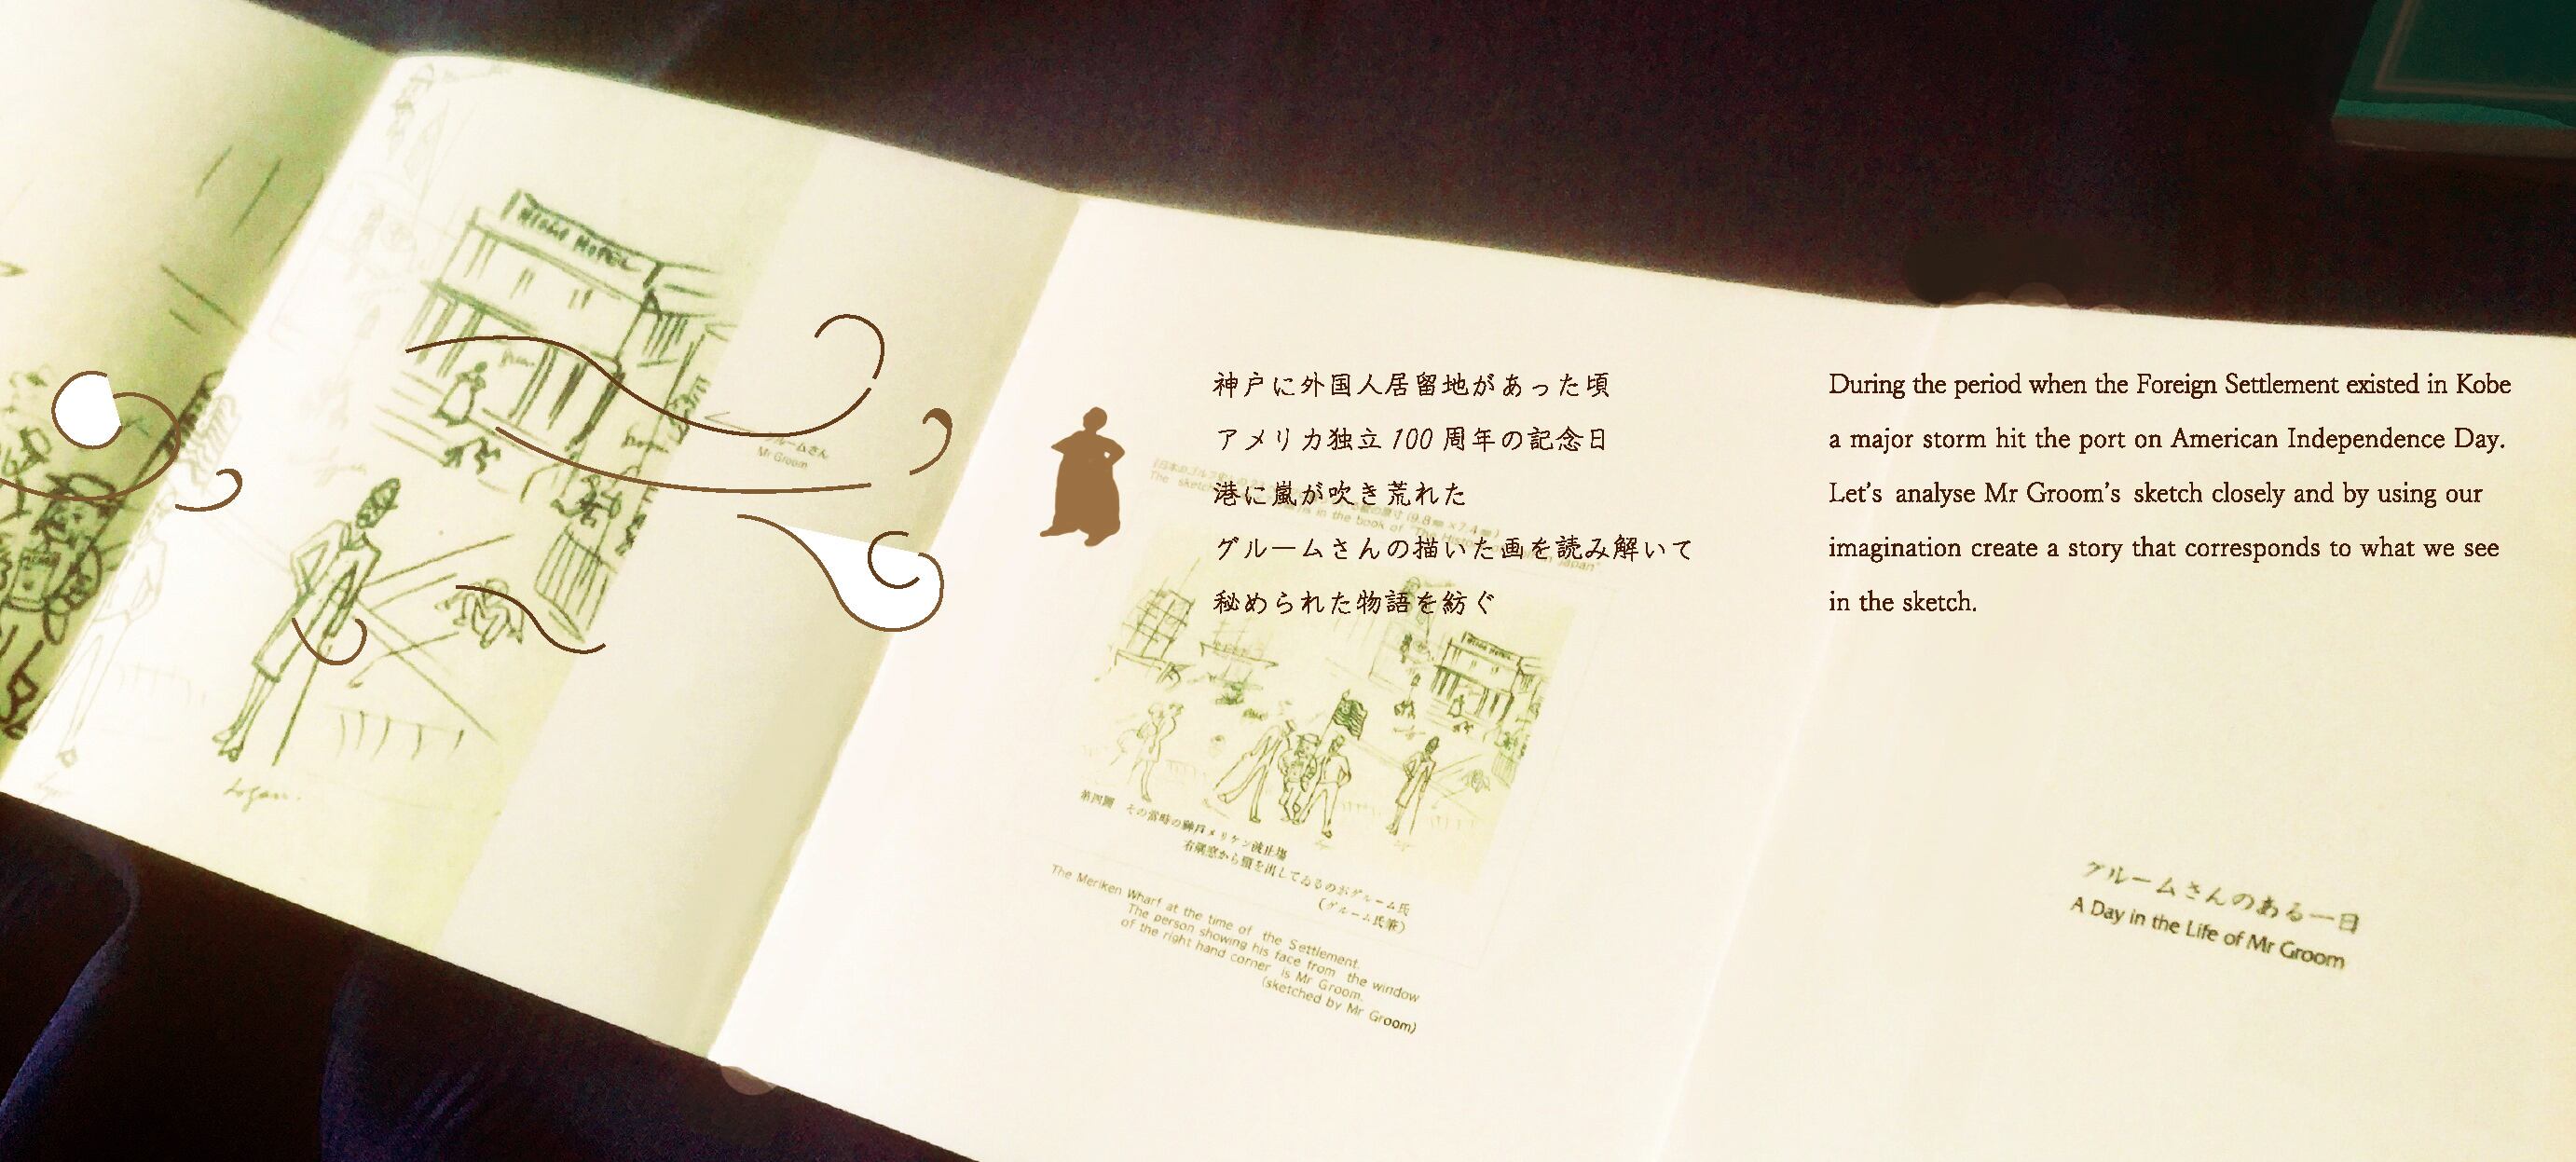 KOBE HOTEL
グルームさん
Mr Groom
Logan.
神戸に外国人居留地があった頃
アメリカ独立100周年の記念日
港に嵐が吹き荒れた
グルームさんの描いた画を読み解いて
秘められた物語を紡ぐ
During the period when the Foreign Settlement existed in Kobe
a major storm hit the port on American Independence Day.
Let's analyse Mr Groom's sketch closely and by using our
imagination create a story that corresponds to what we see
in the sketch.
The sketch
in the book of "The History
Japan"
第四圖 その當時の神戸メリケン波止場
右端窓から顔を出してゐるのがグルーム氏
(グルーム氏筆)
The Meriken Wharf at the time of the Settlement.
The person showing his face from the window
of the right hand corner is Mr Groom.
(sketched by Mr Groom)
グルームさんのある一日
A Day in the Life of Mr Groom